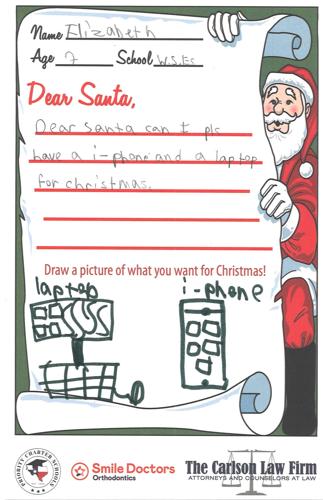 Name Elizabeth
Age 7 School W.S.Es
Dear Santa,
Dear santa can I pls
have a i-phone and a laptop
for christmas.
Draw a picture of what you want for Christmas!
laptop i-phone
PRIORITY CHARTER SCHOOLS
Smile Doctors
Orthodontics
The Carlson Law Firm
ATTORNEYS AND COUNSELORS AT LAW